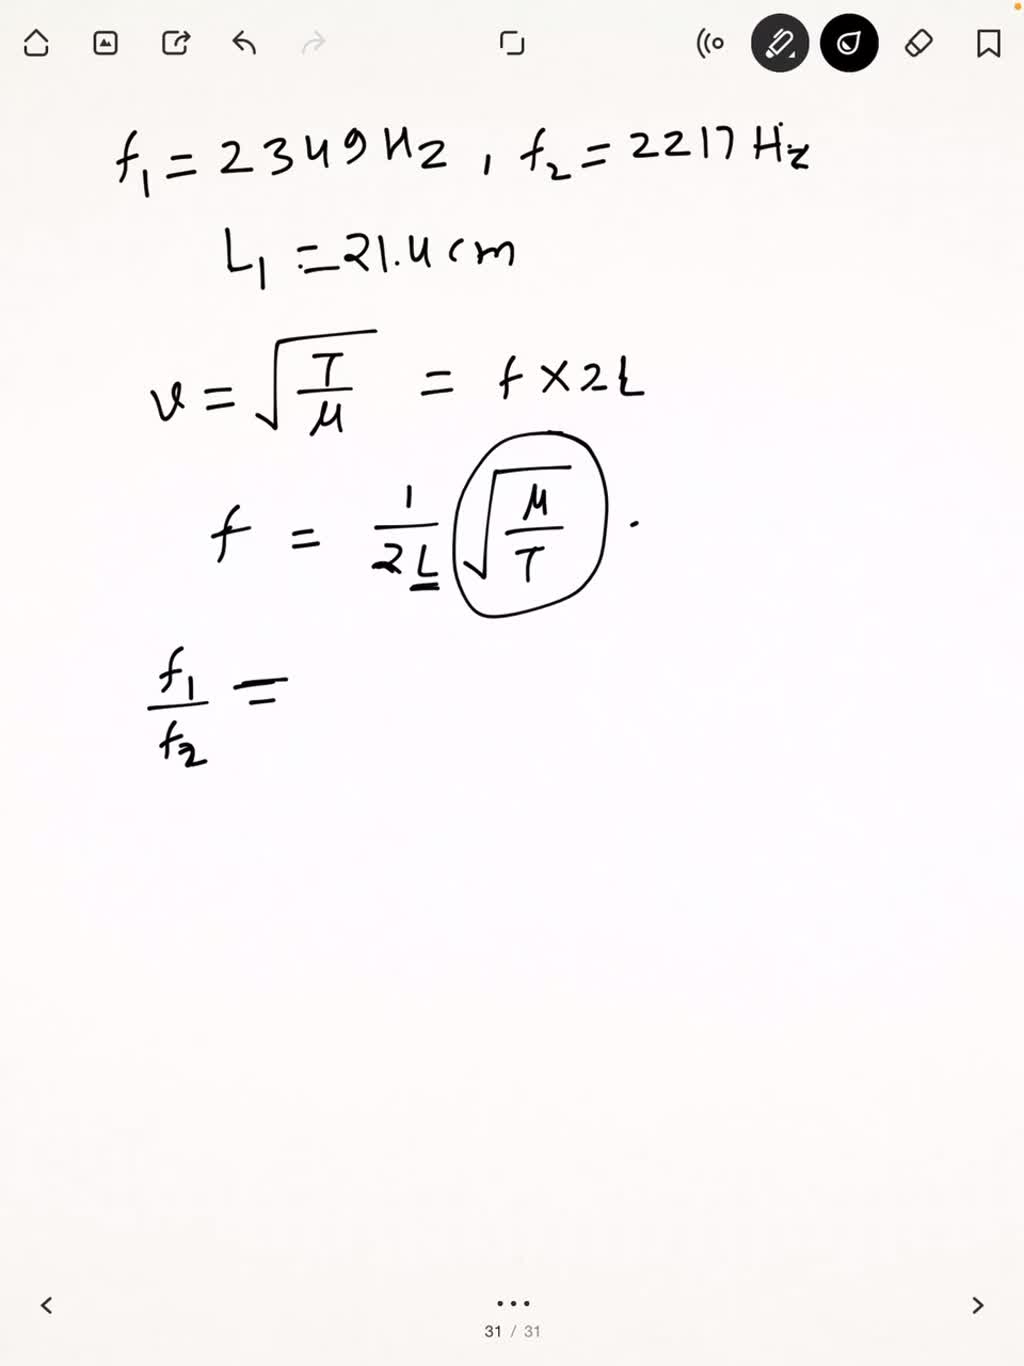 f₁ = 2349 Hz , f₂ = 2217 Hz
L₁ = 21.4 cm
v = √(T/μ) = f × 2L
f = 1/(2L) √(μ/T) .
f₁/f₂ =
31 / 31